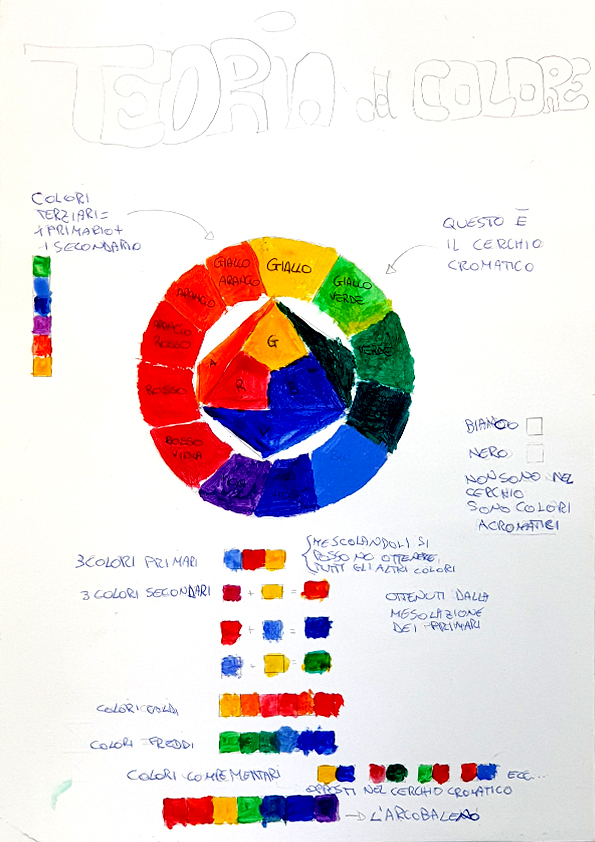 TEORIA del COLORE
COLORI
TERZIARI =
1 PRIMARIO +
1 SECONDARIO
QUESTO È
IL CERCHIO
CROMATICO
GIALLO
GIALLO
ARANCIO
GIALLO
VERDE
ARANCIO
VERDE
ARANCIO
ROSSO
ROSSO
ROSSO
VIOLA
G
A
R
BIANCO
NERO
NON SONO NEL
CERCHIO
SONO COLORI
ACROMATICI
3 COLORI PRIMARI
{MESCOLANDOLI SI
POSSONO OTTENERE,
TUTTI GLI ALTRI COLORI
3 COLORI SECONDARI
+ =
OTTENUTI DALLA
MESOLAZIONE
DEI PRIMARI
+ =
+ =
COLORI CALDI
COLORI FREDDI
COLORI COMPEMENTARI
ECC...
OPPOSTI NEL CERCHIO CROMATICO
→ L'ARCOBALENO